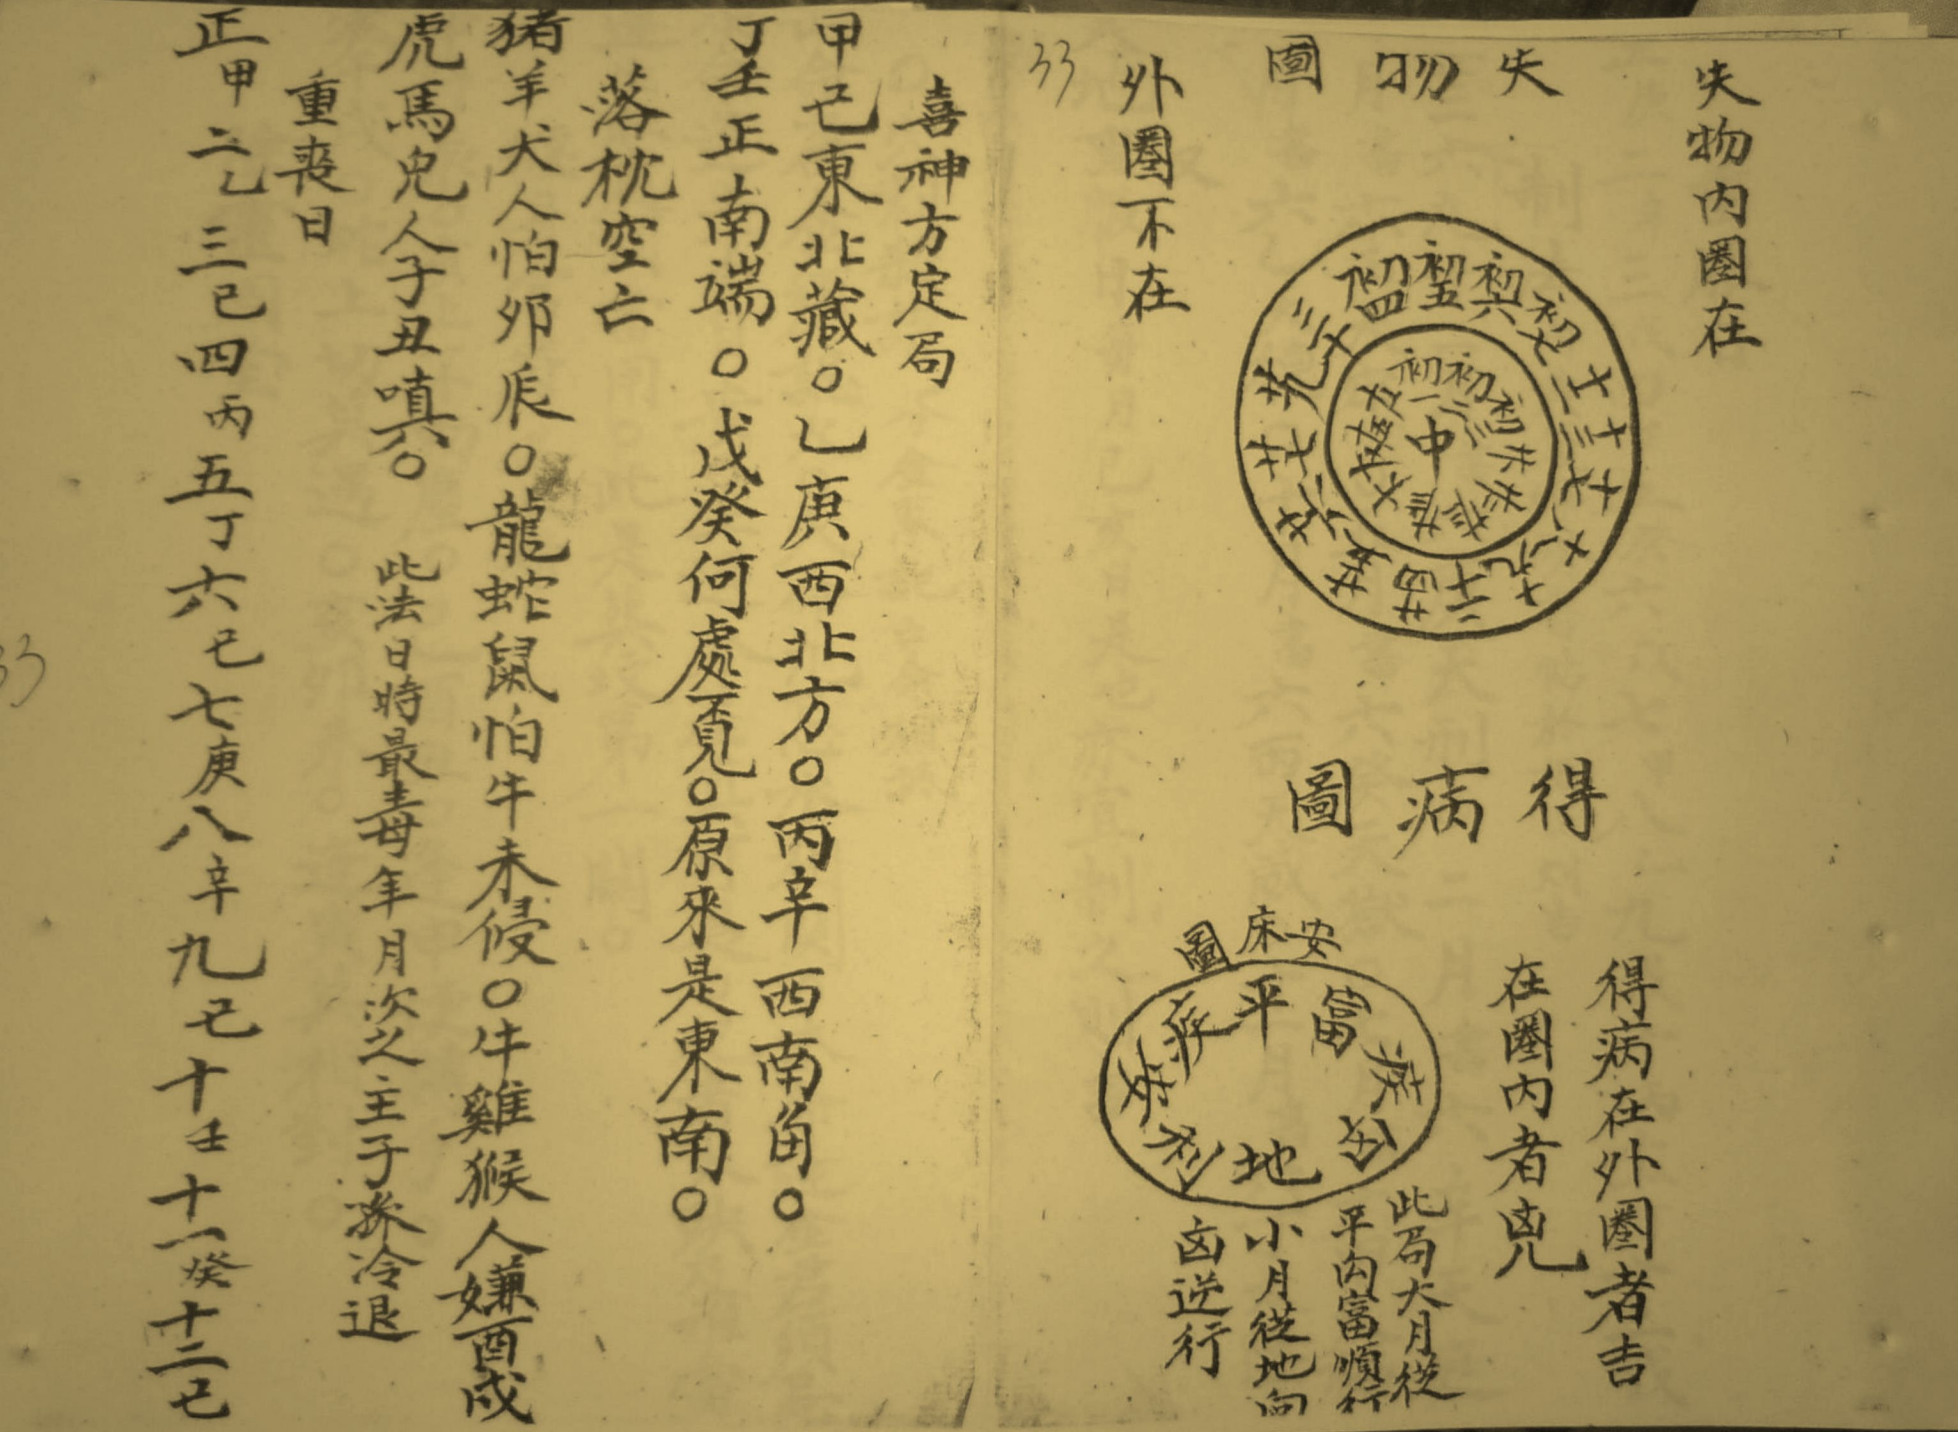 失物內圈在
失物圖
初四 初五 初六 初七 十二 十三 十七 十八 十九 二十 廿四 廿五 廿六 廿七 廿九 三十
初一 初二 初三
中
外圈不在
33
得病圖
得病在外圈者吉
在圈內者兇
安床圖
平 富 地
此局大月從
平向富順行
小月從地向
逆行
喜神方定局
甲己東北藏。乙庚西北方。丙辛西南角。
丁壬正南端。戊癸何處覓。原來是東南。
落枕空亡
猪羊犬人怕卯辰。龍蛇鼠怕牛未侵。牛雞猴人嫌酉戌
虎馬兔人子丑嗔。此法日時最毒年月次之主子孫冷退
重喪日
正甲二乙三己四丙五丁六己七庚八辛九己十壬十一癸十二己
33